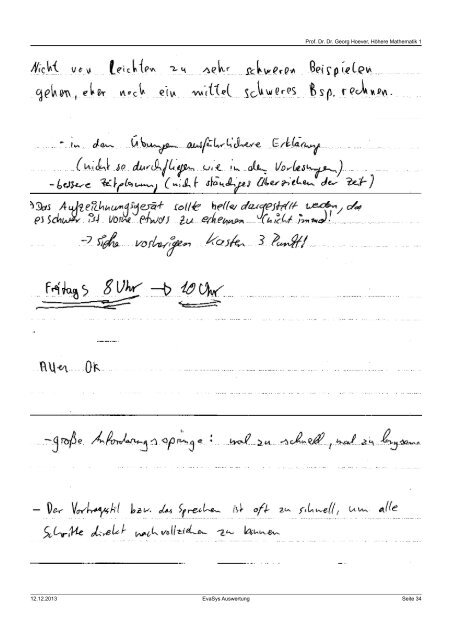 Prof. Dr. Dr. Georg Hoever, Höhere Mathematik 1
Nicht von leichten zu sehr schweren Beispielen
gehen, eher noch ein mittel schweres Bsp. rechnen.
- in den Übungen ausführlichere Erklärung
(nicht so durchfliegen wie in den Vorlesungen)
- bessere Zeitplanung (nicht ständiges Überziehen der Zeit)
Das Aufzeichnungsgerät sollte heller dargestellt werden, da
es schwer ist vorne etwas zu erkennen (nicht immer)!
→ Siehe vorherigen Kasten 3 Punkt!
Freitags 8 Uhr → 10 Uhr
Alles OK
- große Anforderungssprünge: mal zu schnell, mal zu langsam
- Der Vortragstil bzw. das Sprechen ist oft zu schnell, um alle
Schritte direkt nachvollziehen zu können
12.12.2013 EvaSys Auswertung Seite 34